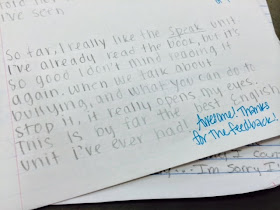 I've seen.
So far, I really like the Speak unit
I've already read the book, but it's
so good I don't mind reading it
again. When we talk about
bullying, and what you can do to
stop it, it really opens my eyes.
This is by far the best English
unit I've ever had!
Awesome! Thanks
for the feedback!
I'm sorry I